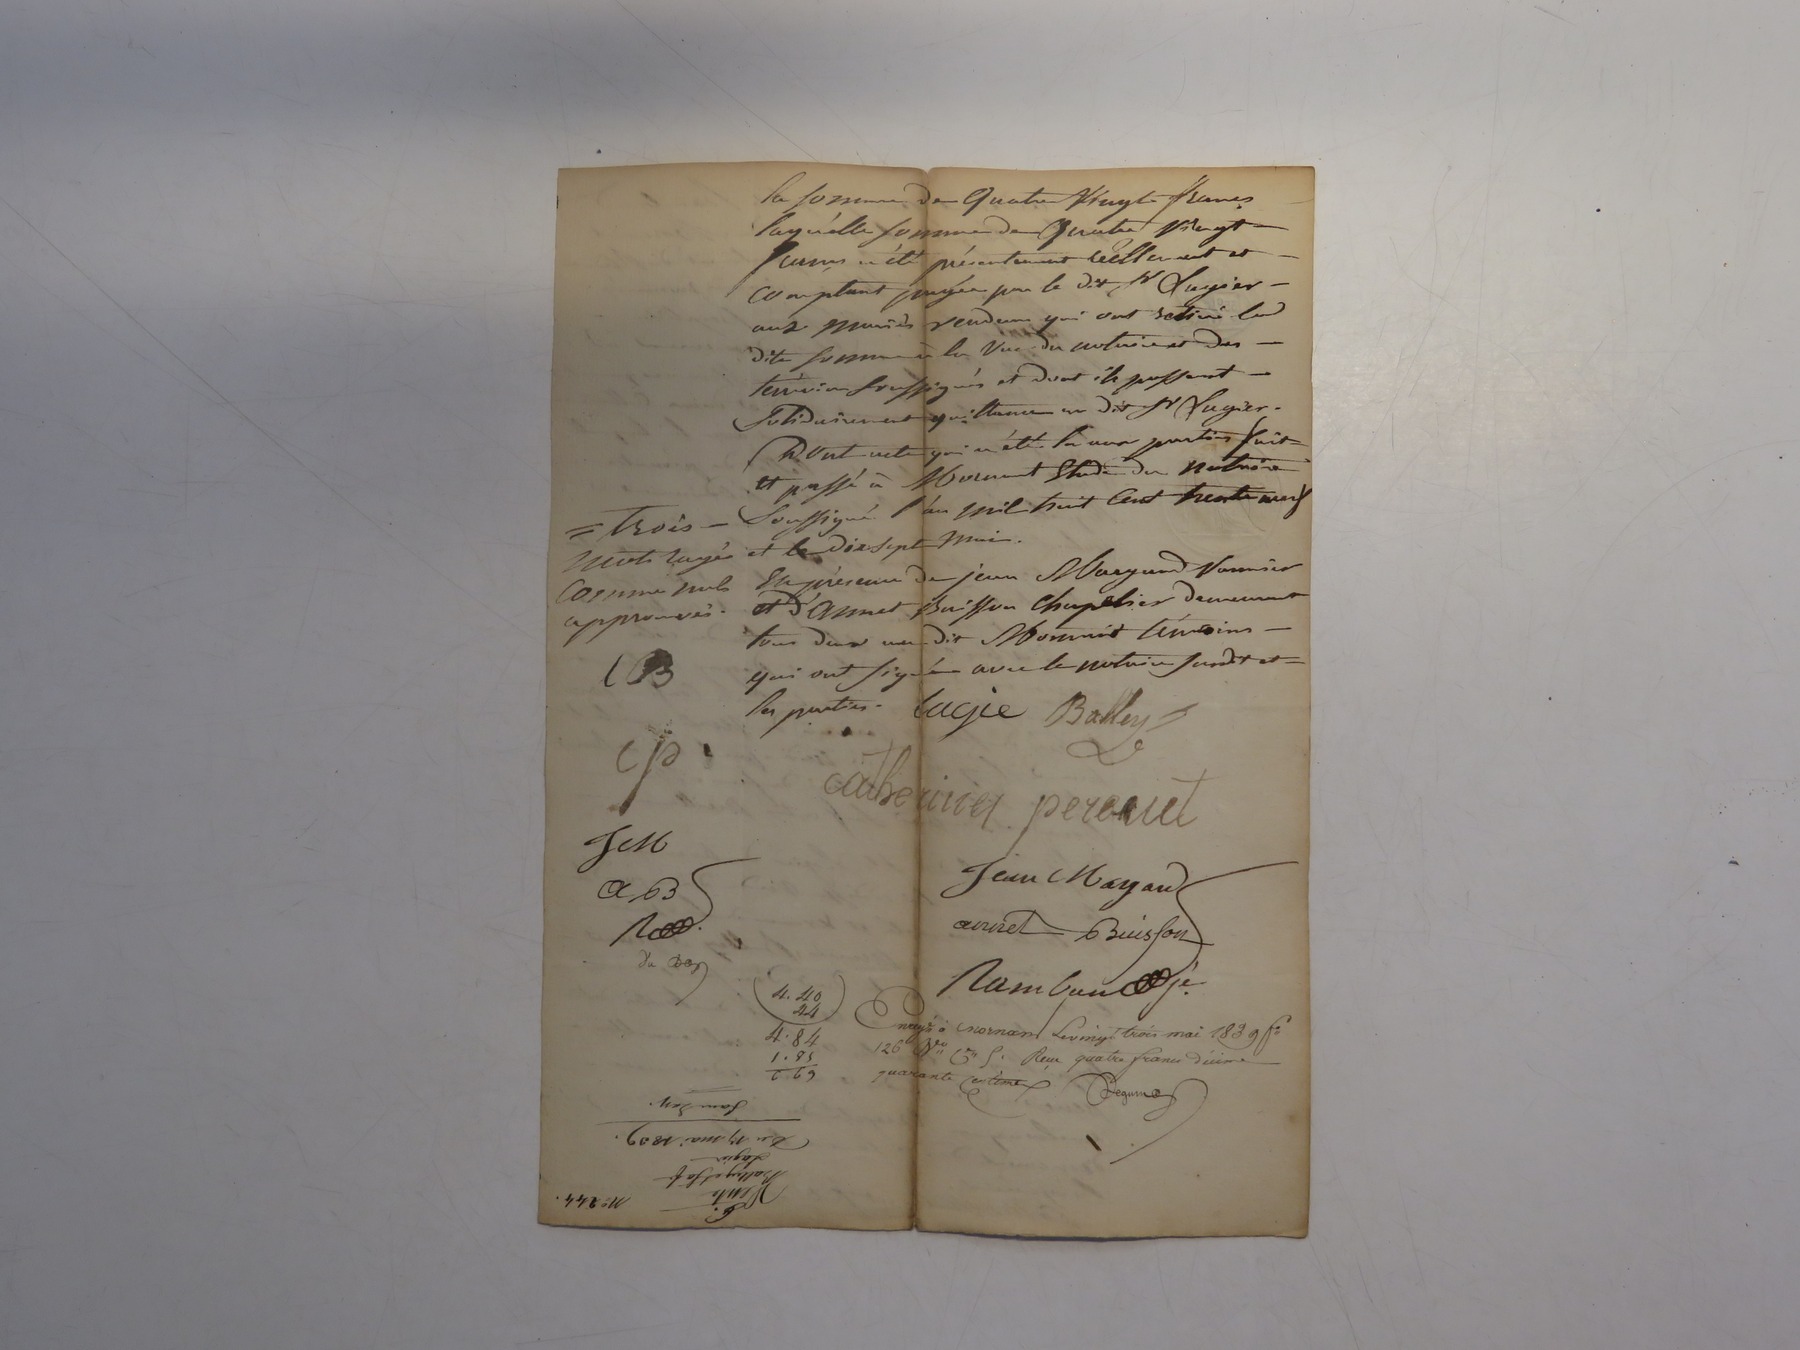 la somme de Quatre Vingt francs
laquelle somme de Quatre Vingt
francs a été présentement réellement et
comptant payée par le dit Sr Lagier
aux mariés vendeurs qui ont retiré la
dite somme à la vue du notaire et des
témoins soussignés et dont ils passent
solidairement quittance au dit Sr Lagier.
Dont acte qui a été lu aux parties fait
et passé à Mornant Etude du notaire
soussigné l'an mil huit cent trente neuf
et le dix sept mai.
En présence de jean Margand
et d'Annet Buisson Chapelier demeurant
tous deux au dit Mornant témoins
qui ont signé avec le notaire susdit et
les parties.
= trois
mots rayés
comme nuls
approuvés.
lagié Balley
catherine peronet
Jean Margand
annet Buisson
C B
C P
J M
a B
4.40
44
4.84
1.85
6.69
Enregé à Mornant le vingt trois mai 1839 fo
126 Vo Reçu quatre francs décime
quarante centimes
Vente
Balley et sa f
Lagier
Du 17 mai 1839.
No 244.